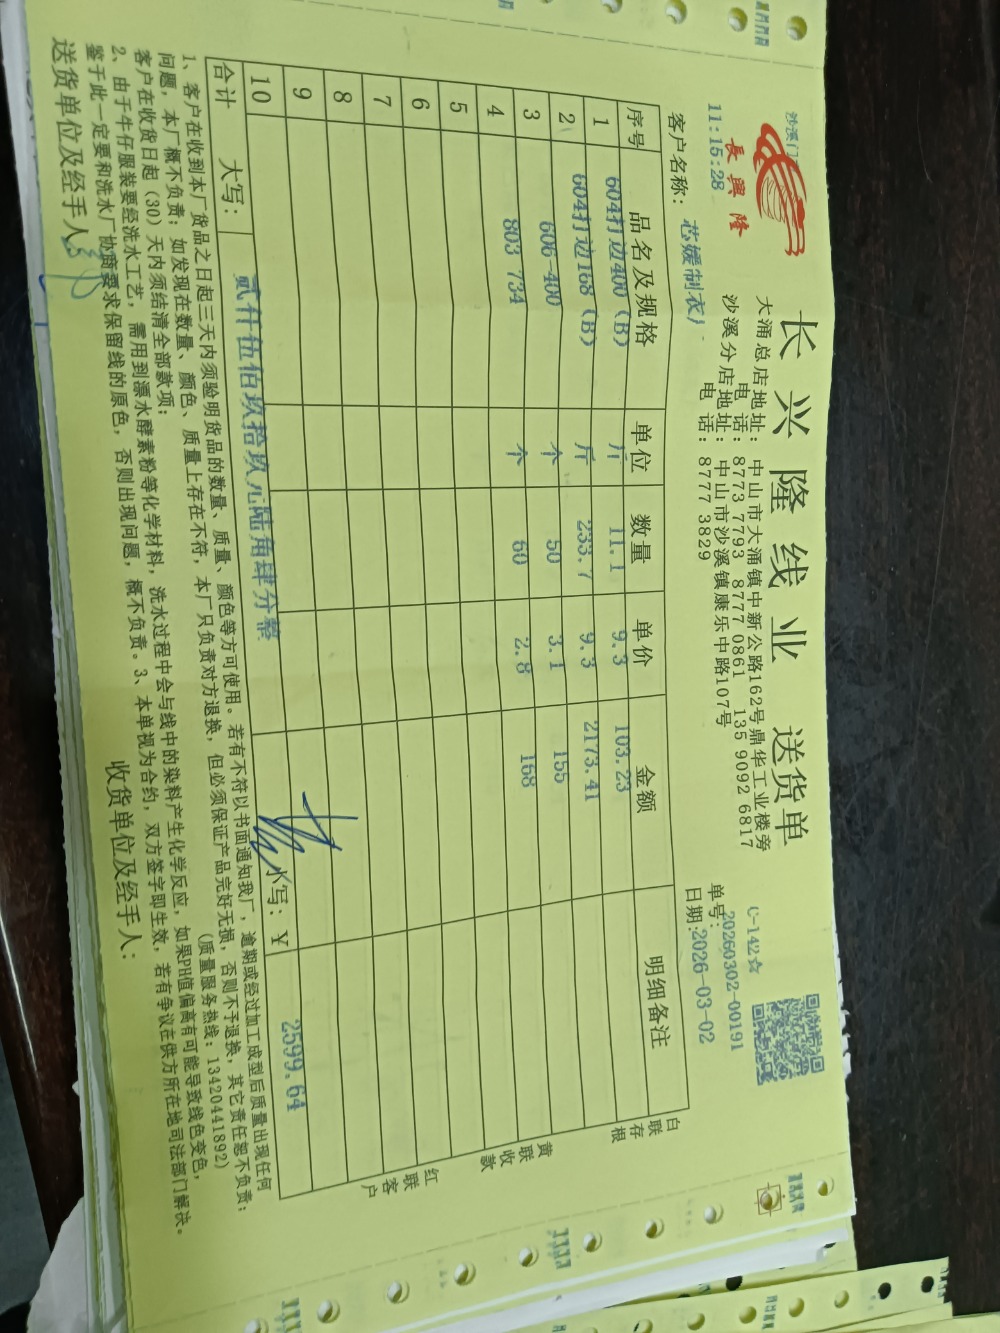 沙溪门
長興隆
11:15:28
长兴隆线业 送货单
大涌总店地址: 中山市大涌镇中新公路162号鼎华工业楼旁
电 话: 8773 7793 8777 0861 135 9092 6817
沙溪分店地址: 中山市沙溪镇康乐中路107号
电 话: 8777 3829
C-142☆
单号: 20260302-00191
日期: 2026-03-02
客户名称: 芯媛制衣厂
序号 品名及规格 单位 数量 单价 金额 明细备注
1 604打边400 (B) 斤 11.1 9.3 103.23
2 604打边168 (B) 斤 233.7 9.3 2173.41
3 606-400 个 50 3.1 155
4 803 734 个 60 2.8 168
5
6
7
8
9
10
合计 大写: 贰仟伍佰玖拾玖元陆角肆分整 小写: ¥ 2599.64
白联存根
黄联收款
红联客户
1、客户在收到本厂货品之日起三天内须验明货品的数量、质量、颜色等方可使用。若有不符以书面通知我厂,逾期或经过加工成型后质量出现任何
问题,本厂概不负责;如发现在数量、颜色、质量上存在不符,本厂只负责对方退换,但必须保证产品完好无损,否则不予退换,其它责任恕不负责;
客户在收货日起(30)天内须结清全部款项; (质量服务热线: 13420441892)
2、由于牛仔服装要经洗水工艺,需用到漂水酵素粉等化学材料,洗水过程中会与线中的染料产生化学反应,如果PH值偏高有可能导致线色变色,
鉴于此一定要和洗水厂协商要求保留线的原色,否则出现问题,概不负责。3、本单视为合约,双方签字即生效,若有争议在供方所在地司法部门解决。
送货单位及经手人: 收货单位及经手人: